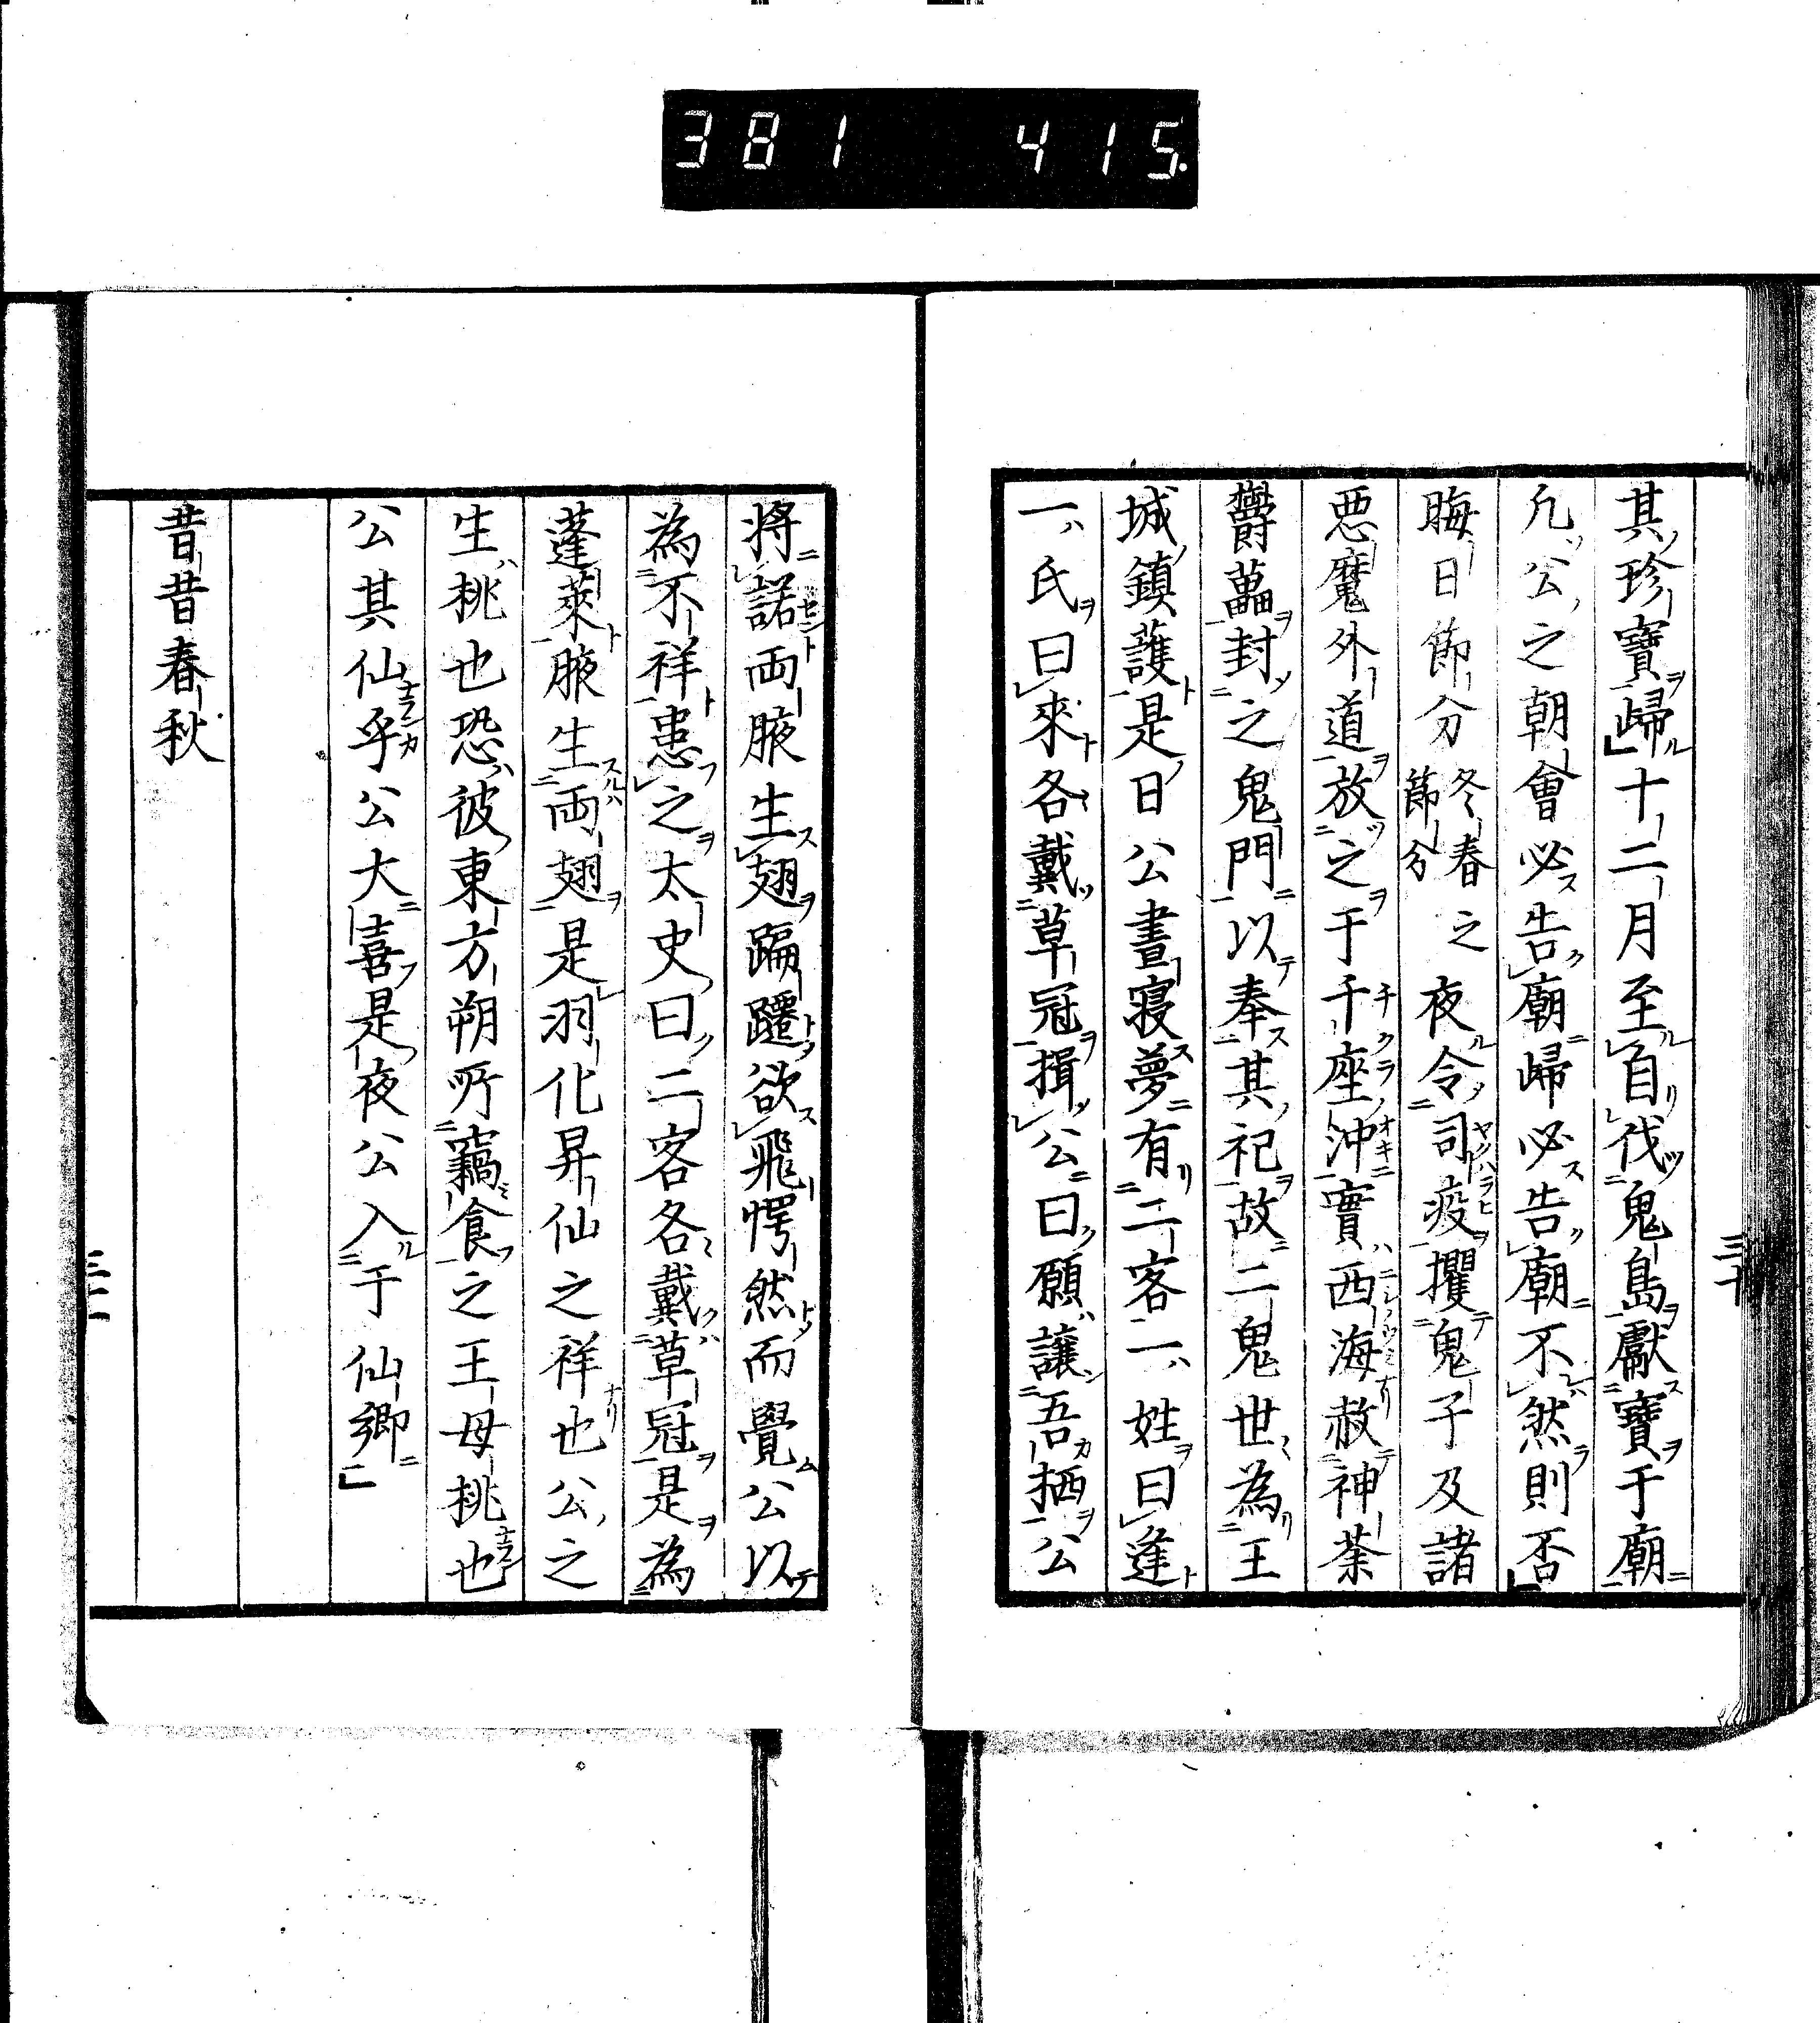 381 415
其珍寶歸十二月至自伐鬼島獻寶于廟
凡公之朝會必告廟歸必告廟不然則否
晦日節分冬春節分之夜令司疫攫鬼子及諸
悪魔外道放之于千座沖實西海赦神荼
欝藟封之鬼門以奉其祀故二鬼世為王
城鎮護是日公晝寝夢有二客一姓曰逢
一氏曰來各戴草冠揖公曰願譲吾栖公
三十
將諾両腋生翅蹁躚欲飛愕然而覺公以
為不祥患之太史曰二客各戴草冠是為
蓬萊腋生両翅是羽化昇仙之祥也公之
生桃也恐彼東方朔所竊食之王母桃也
公其仙乎公大喜是夜公入于仙郷
昔昔春秋